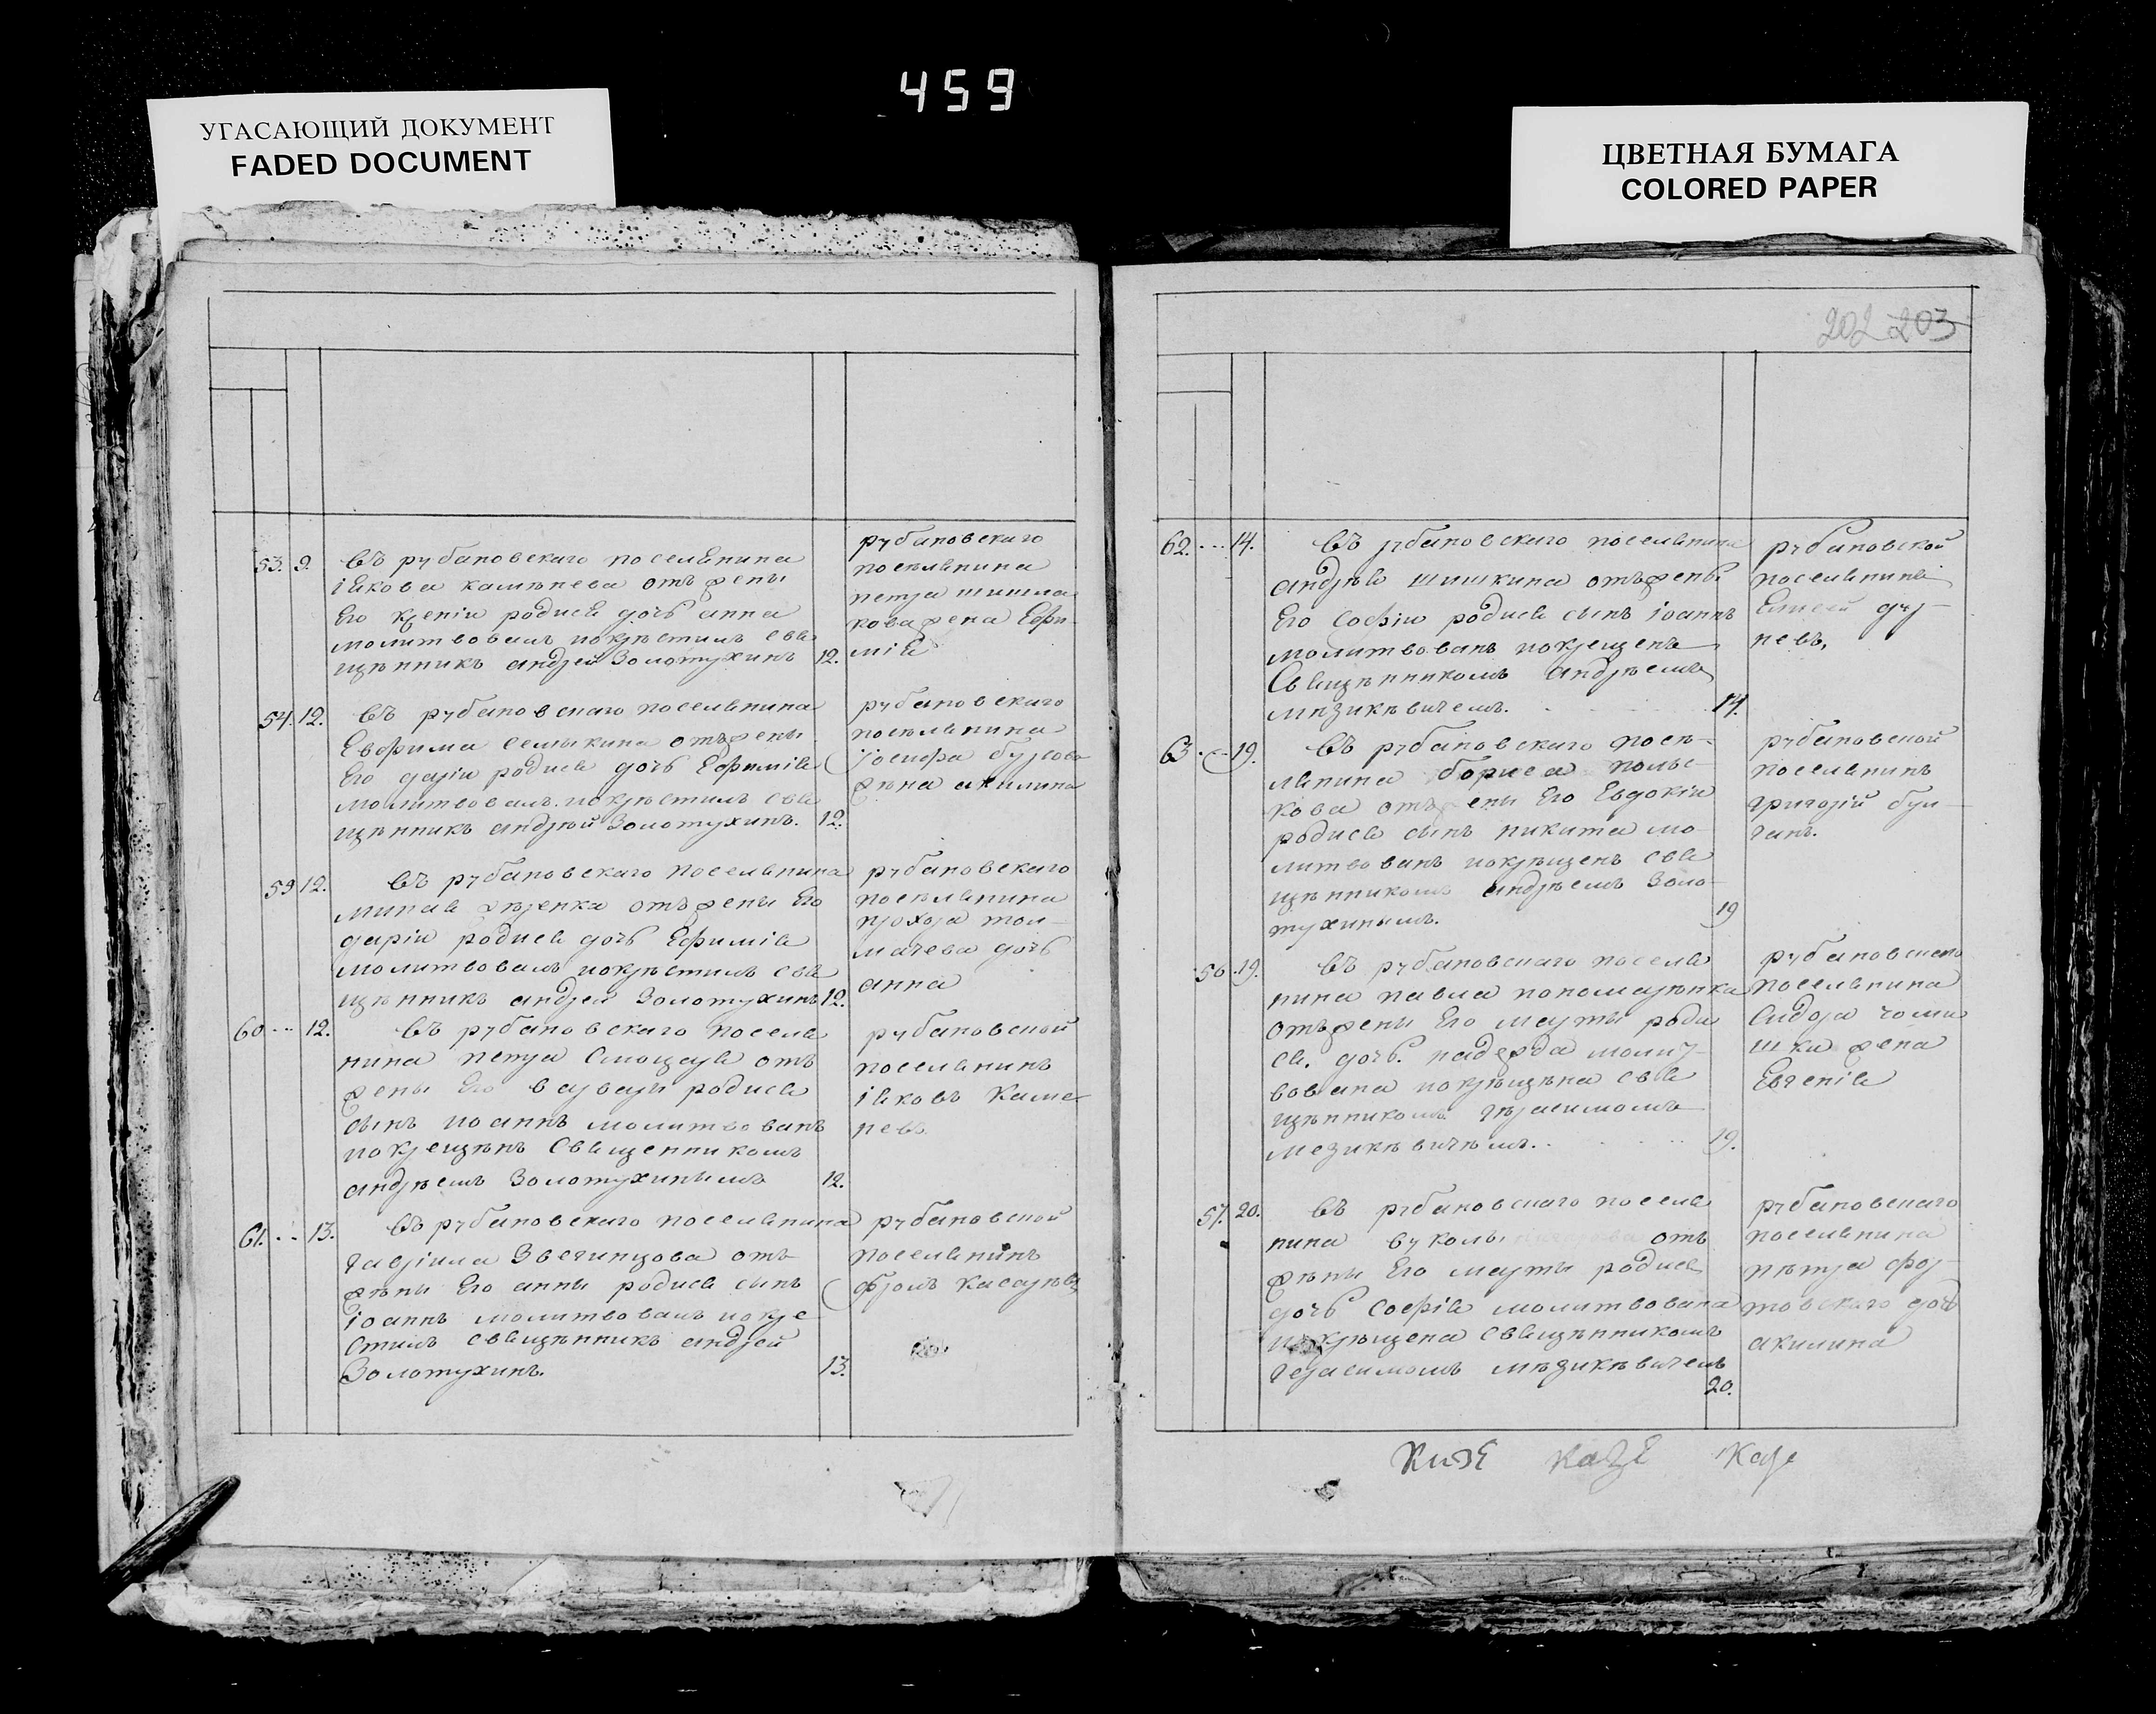 459
УГАСАЮЩИЙ ДОКУМЕНТ
FADED DOCUMENT
ЦВЕТНАЯ БУМАГА
COLORED PAPER
53. 9. въ рубановскаго поселянина
іякова камѣнева отъ жены
Его ксеніи родися дочь анна
молитвовалъ икрѣстилъ свя
щѣнникъ андрей Золотухинъ 12.
рубановскаго
посѣлянина
петра шишла
кова жена Ефи-
мія
54. 12. въ рубановскаго поселянина
Евфима семыкина отъ жены
Его даріи родися дочь Ефимія
молитвовалъ икрѣстилъ свя
щѣнникъ андрѣй Золотухинъ. 12.
рубановскаго
посѣлянина
іосифа
жѣна акилина
59 12. въ рубановскаго поселянина
миная отъ жены Его
даріи родися дочь Ефимія
молитвовалъ икрѣстилъ свя
щѣнникъ андрей Золотухинъ 12.
рубановскаго
посѣлянина
прохора тол-
мачева дочь
анна
60 -- 12. въ рубановскаго поселя
нина петра отъ
жены Его варвары родися
сынъ иоаннъ молитвованъ
икрещѣнъ Священникомъ
андрѣемъ Золотухинымъ 12.
рубановской
поселянинъ
іяковъ Каме-
невъ
61. -- 13. въ рубановскаго поселянина
гавріила Звегинцова отъ
жѣны Его анны родися сынъ
іоаннъ молитвовалъ икре
стилъ свящѣнникъ андрей
Золотухинъ. 13.
рубановской
поселянинъ
202 203
62. --- 14. въ рубановскаго поселянина
андрѣя шишкина отъ жены
Его Софіи родися сынъ іоаннъ
молитвованъ икрещенъ
Свящѣнникомъ андрѣемъ
мѣзикѣвичемъ. 14.
рубановской
поселянинъ
Елисей дур-
невъ,
63 -- 19. въ рубановскаго посѣ-
лянина бориса поля-
кова отъ жены Его Евдокіи
родися сынъ никита мо-
литвованъ икрѣщенъ свя
щѣнникомъ андрѣемъ Золо-
тухинымъ. 19
рубановской
поселянинъ
григорій бул-
ганъ.
56 19. въ рубановскаго поселя
нина павла пономарѣнка
отъ жены Его марты роди
ся. дочь. надежда молит-
вована икрѣщѣна свя
щѣнникомъ гѣрасимомъ
мезикѣвичѣмъ. 19.
рубановскаго
поселянина
Сидора
шка жена
Евгенія
57. 20. въ рубановскаго поселя
нина вуколы отъ
жѣны Его марты родися
дочь Софія молитвована
икрѣщена свящѣнникомъ
герасимомъ мѣзикѣвичемъ
20.
рубановскаго
поселянина
пѣтра фор-
товскаго дочь
акилина